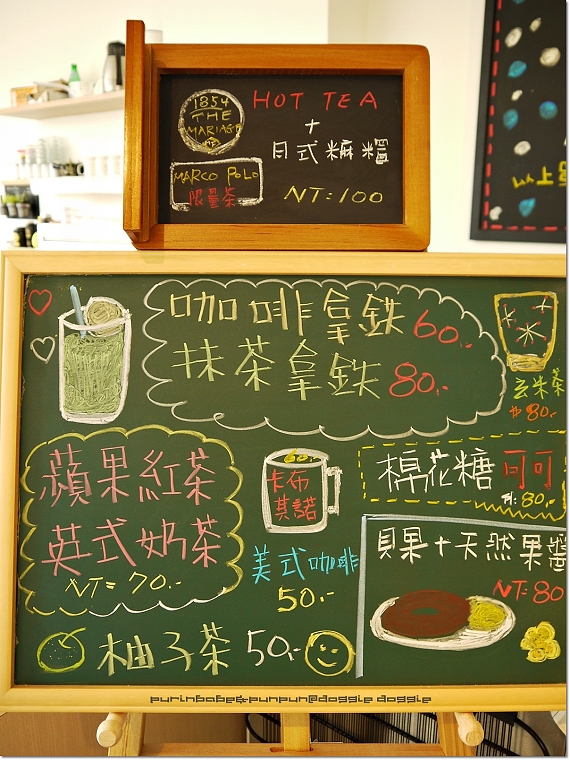 1854
THE
MARIAGE
HOT TEA
+
日式麻糬
MARCO POLO
限量茶
NT:100
以上
咖啡拿鐵 60.-
抹茶拿鐵 80.-
玄米茶
熱80.-
蘋果紅茶
英式奶茶
NT=70.-
60.-
卡布
其諾
棉花糖可可
熱:80.-
美式咖啡
50.-
貝果+天然果醬
NT:80
柚子茶 50.-
purinbabe&punpun@doggie doggie